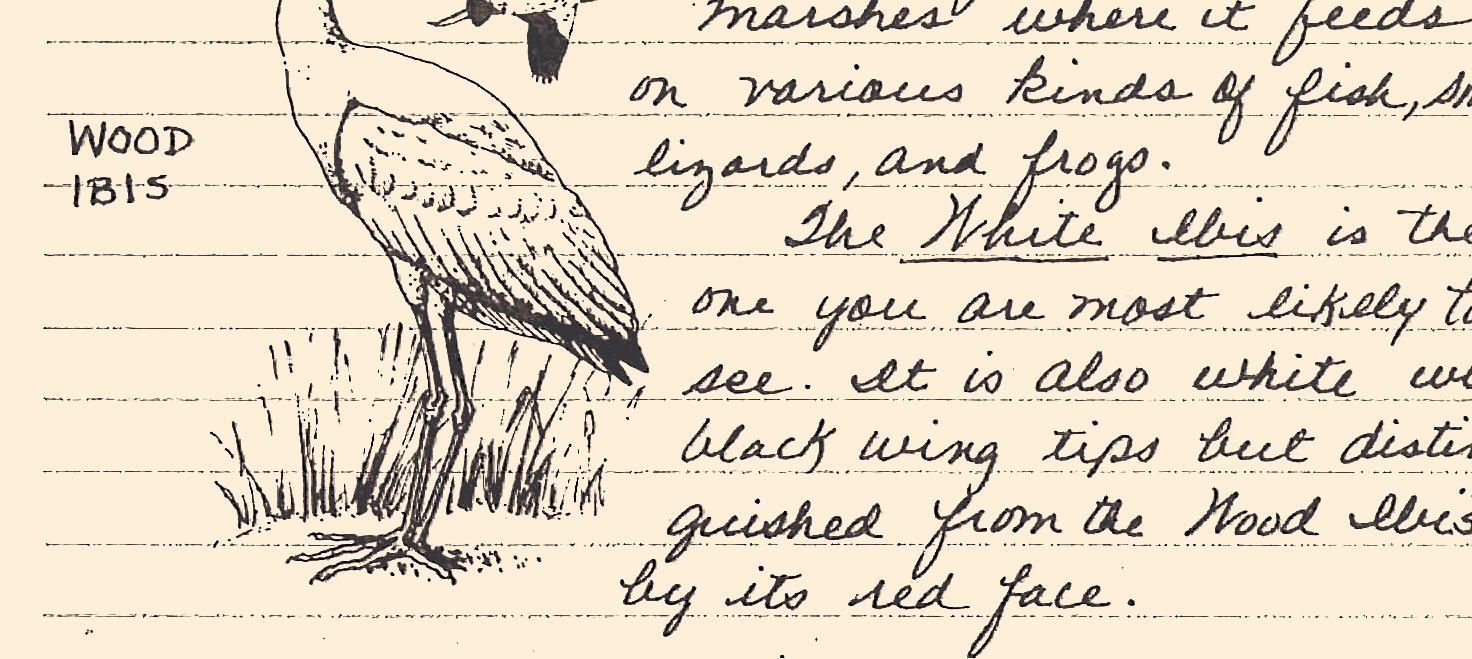 marshes where it feeds
on various kinds of fish,
lizards, and frogs.
WOOD
IBIS
The White Ibis is the
one you are most likely
see. It is also white
black wing tips but distin
guished from the Wood Ibis
by its red face.